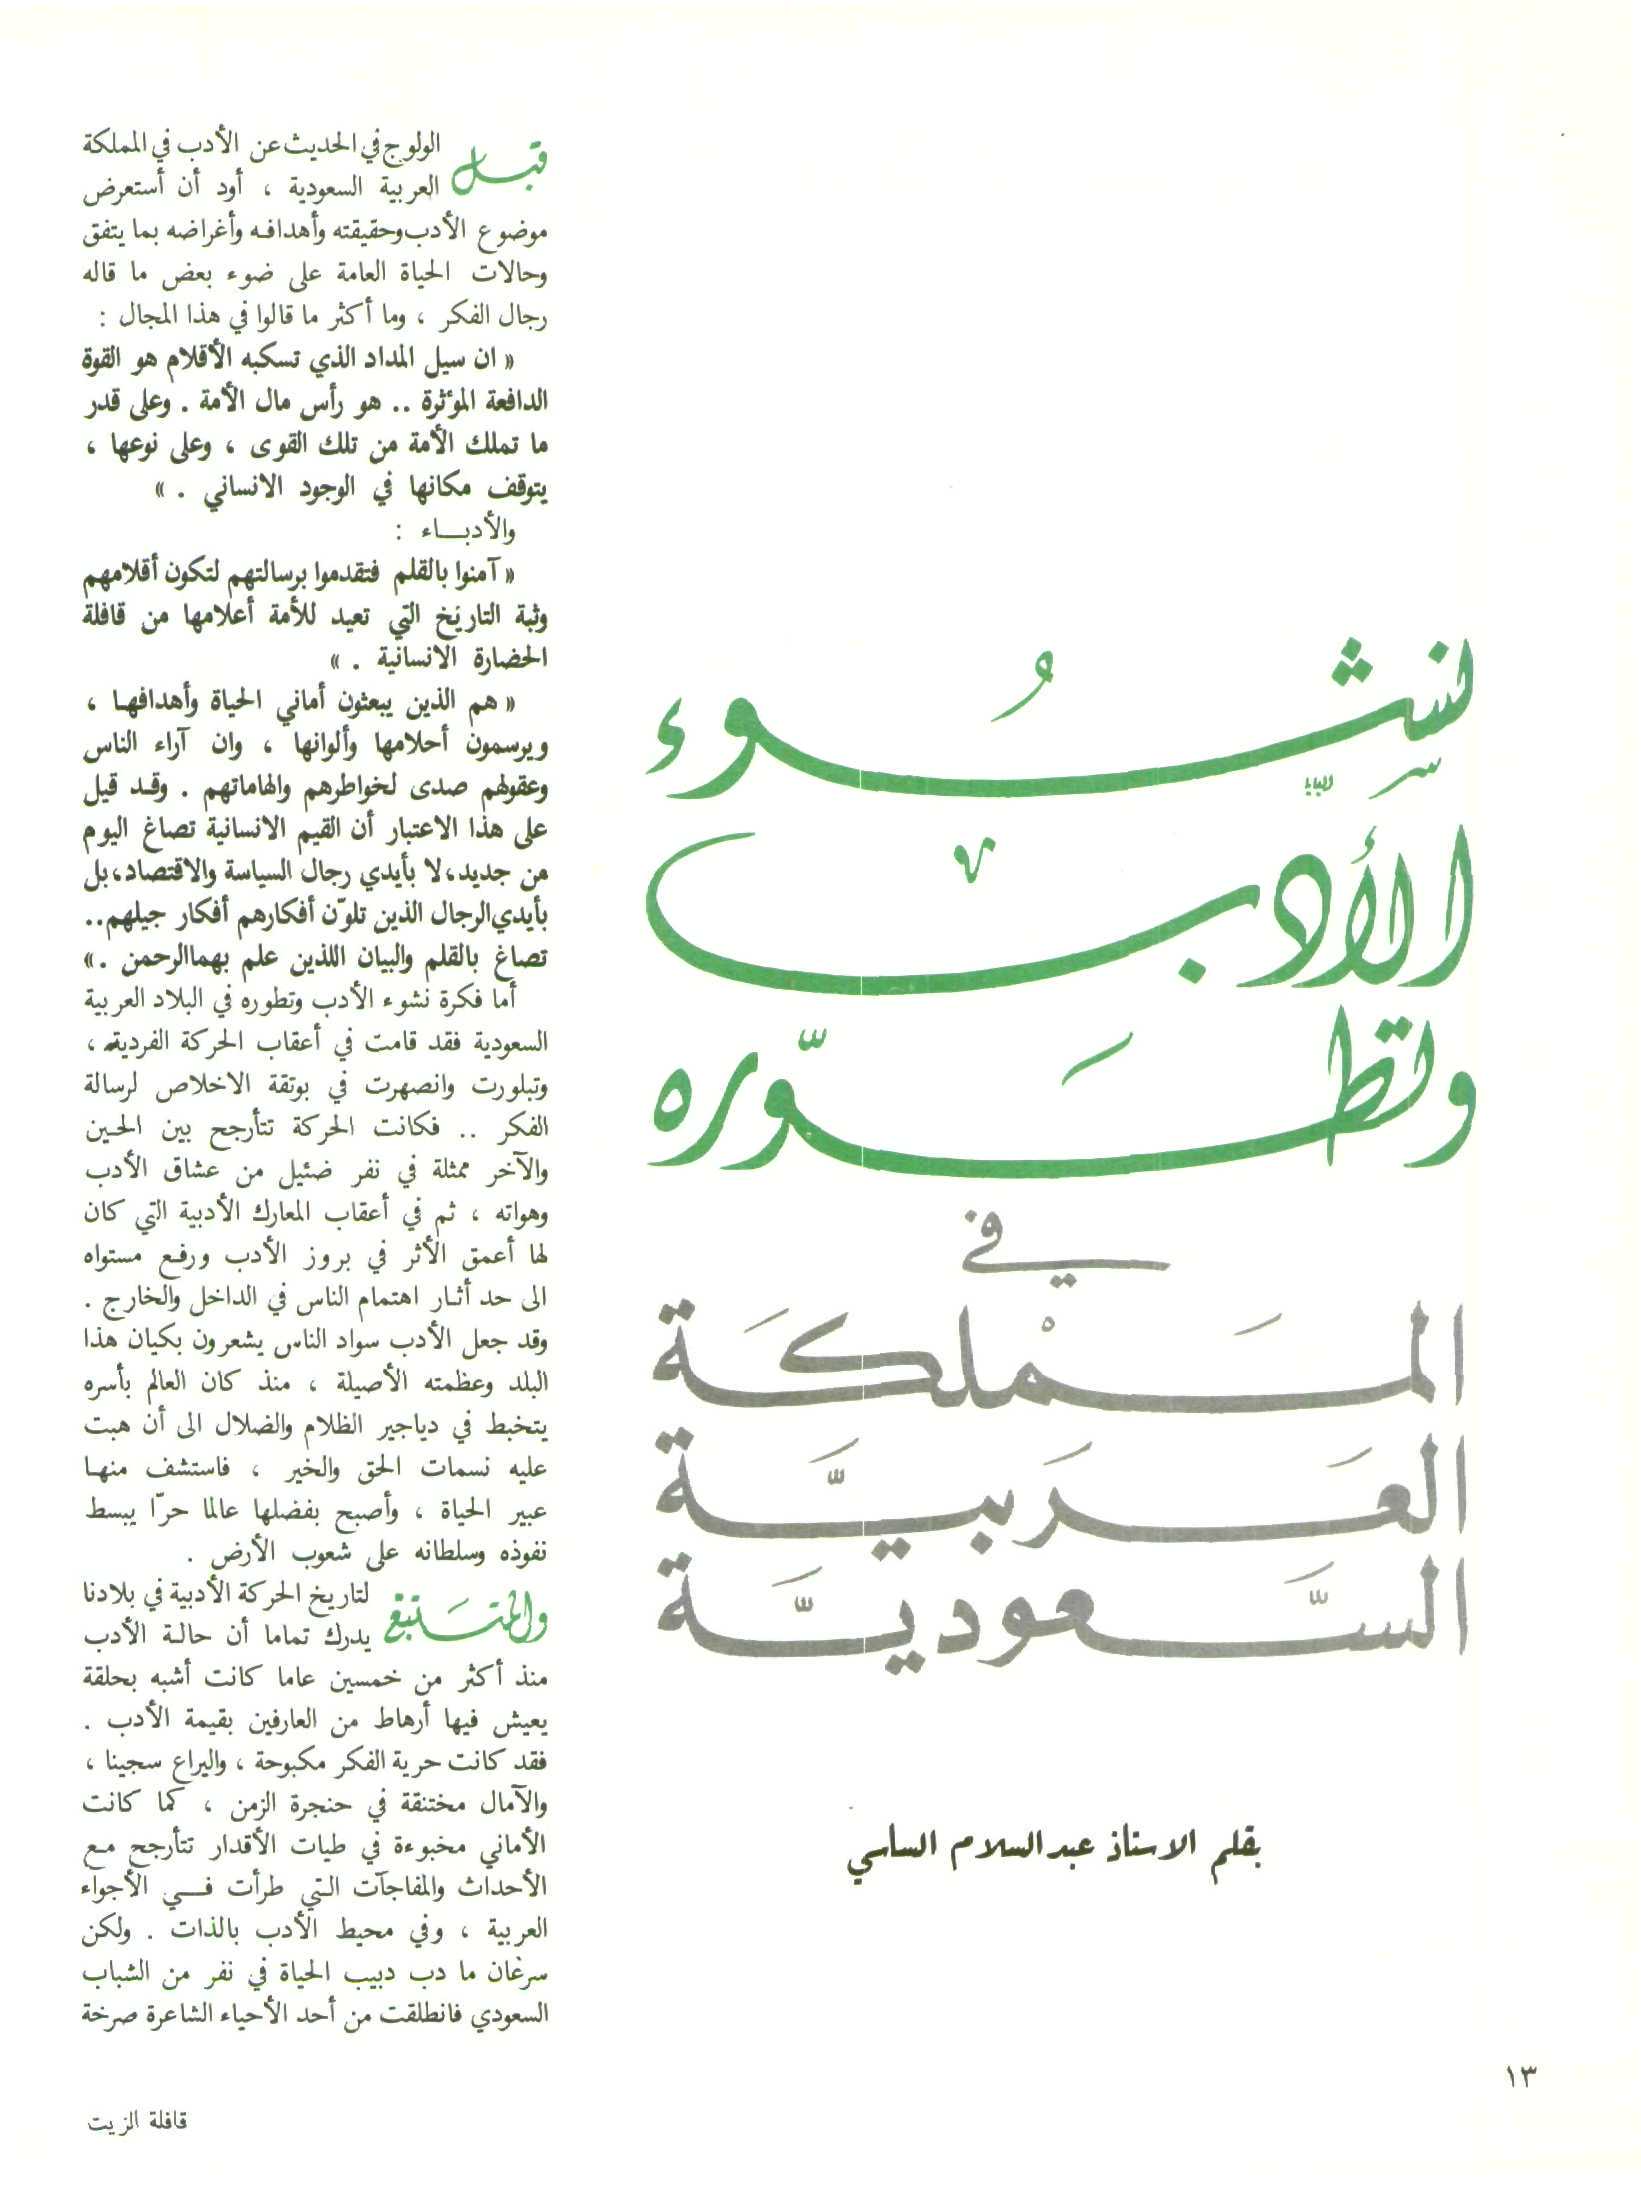 نشوء
الأدب
وتطوّره
في
المملكة
العربيّة
السّعوديّة
بقلم الاستاذ عبد السلام الساسي
قبل الولوج في الحديث عن الأدب في المملكة
العربية السعودية ، أود أن أستعرض
موضوع الأدب وحقيقته وأهدافه وأغراضه بما يتفق
وحالات الحياة العامة على ضوء بعض ما قاله
رجال الفكر ، وما أكثر ما قالوا في هذا المجال :
« ان سيل المداد الذي تسكبه الأقلام هو القوة
الدافعة المؤثرة .. هو رأس مال الأمة . وعلى قدر
ما تملك الأمة من تلك القوى ، وعلى نوعها ،
يتوقف مكانها في الوجود الانساني . »
والأدباء :
« آمنوا بالقلم فتقدموا برسالتهم لتكون أقلامهم
وثبة التاريخ التي تعيد للأمة أعلامها من قافلة
الحضارة الانسانية . »
« هم الذين يبعثون أماني الحياة وأهدافها ،
ويرسمون أحلامها وألوانها ، وان آراء الناس
وعقولهم صدى لخواطرهم والهاماتهم . وقد قيل
على هذا الاعتبار أن القيم الانسانية تصاغ اليوم
من جديد، لا بأيدي رجال السياسة والاقتصاد، بل
بأيدي الرجال الذين تلوّن أفكارهم أفكار جيلهم..
تصاغ بالقلم والبيان اللذين علم بهما الرحمن .»
أما فكرة نشوء الأدب وتطوره في البلاد العربية
السعودية فقد قامت في أعقاب الحركة الفردية ،
وتبلورت وانصهرت في بوتقة الاخلاص لرسالة
الفكر .. فكانت الحركة تتأرجح بين الحين
والآخر ممثلة في نفر ضئيل من عشاق الأدب
وهواته ، ثم في أعقاب المعارك الأدبية التي كان
لها أعمق الأثر في بروز الأدب ورفع مستواه
الى حد أثار اهتمام الناس في الداخل والخارج .
وقد جعل الأدب سواد الناس يشعرون بكيان هذا
البلد وعظمته الأصيلة ، منذ كان العالم بأسره
يتخبط في دياجير الظلام والضلال الى أن هبت
عليه نسمات الحق والخير ، فاستشف منها
عبير الحياة ، وأصبح بفضلها عالما حرّا يبسط
نفوذه وسلطانه على شعوب الأرض .
والمتتبع لتاريخ الحركة الأدبية في بلادنا
يدرك تماما أن حالة الأدب
منذ أكثر من خمسين عاما كانت أشبه بحلقة
يعيش فيها أرهاط من العارفين بقيمة الأدب .
فقد كانت حرية الفكر مكبوحة ، واليراع سجينا ،
والآمال مختنقة في حنجرة الزمن ، كما كانت
الأماني مخبوءة في طيات الأقدار تتأرجح مع
الأحداث والمفاجآت التي طرأت في الأجواء
العربية ، وفي محيط الأدب بالذات . ولكن
سرعان ما دب دبيب الحياة في نفر من الشباب
السعودي فانطلقت من أحد الأحياء الشاعرة صرخة
١٣
قافلة الزيت